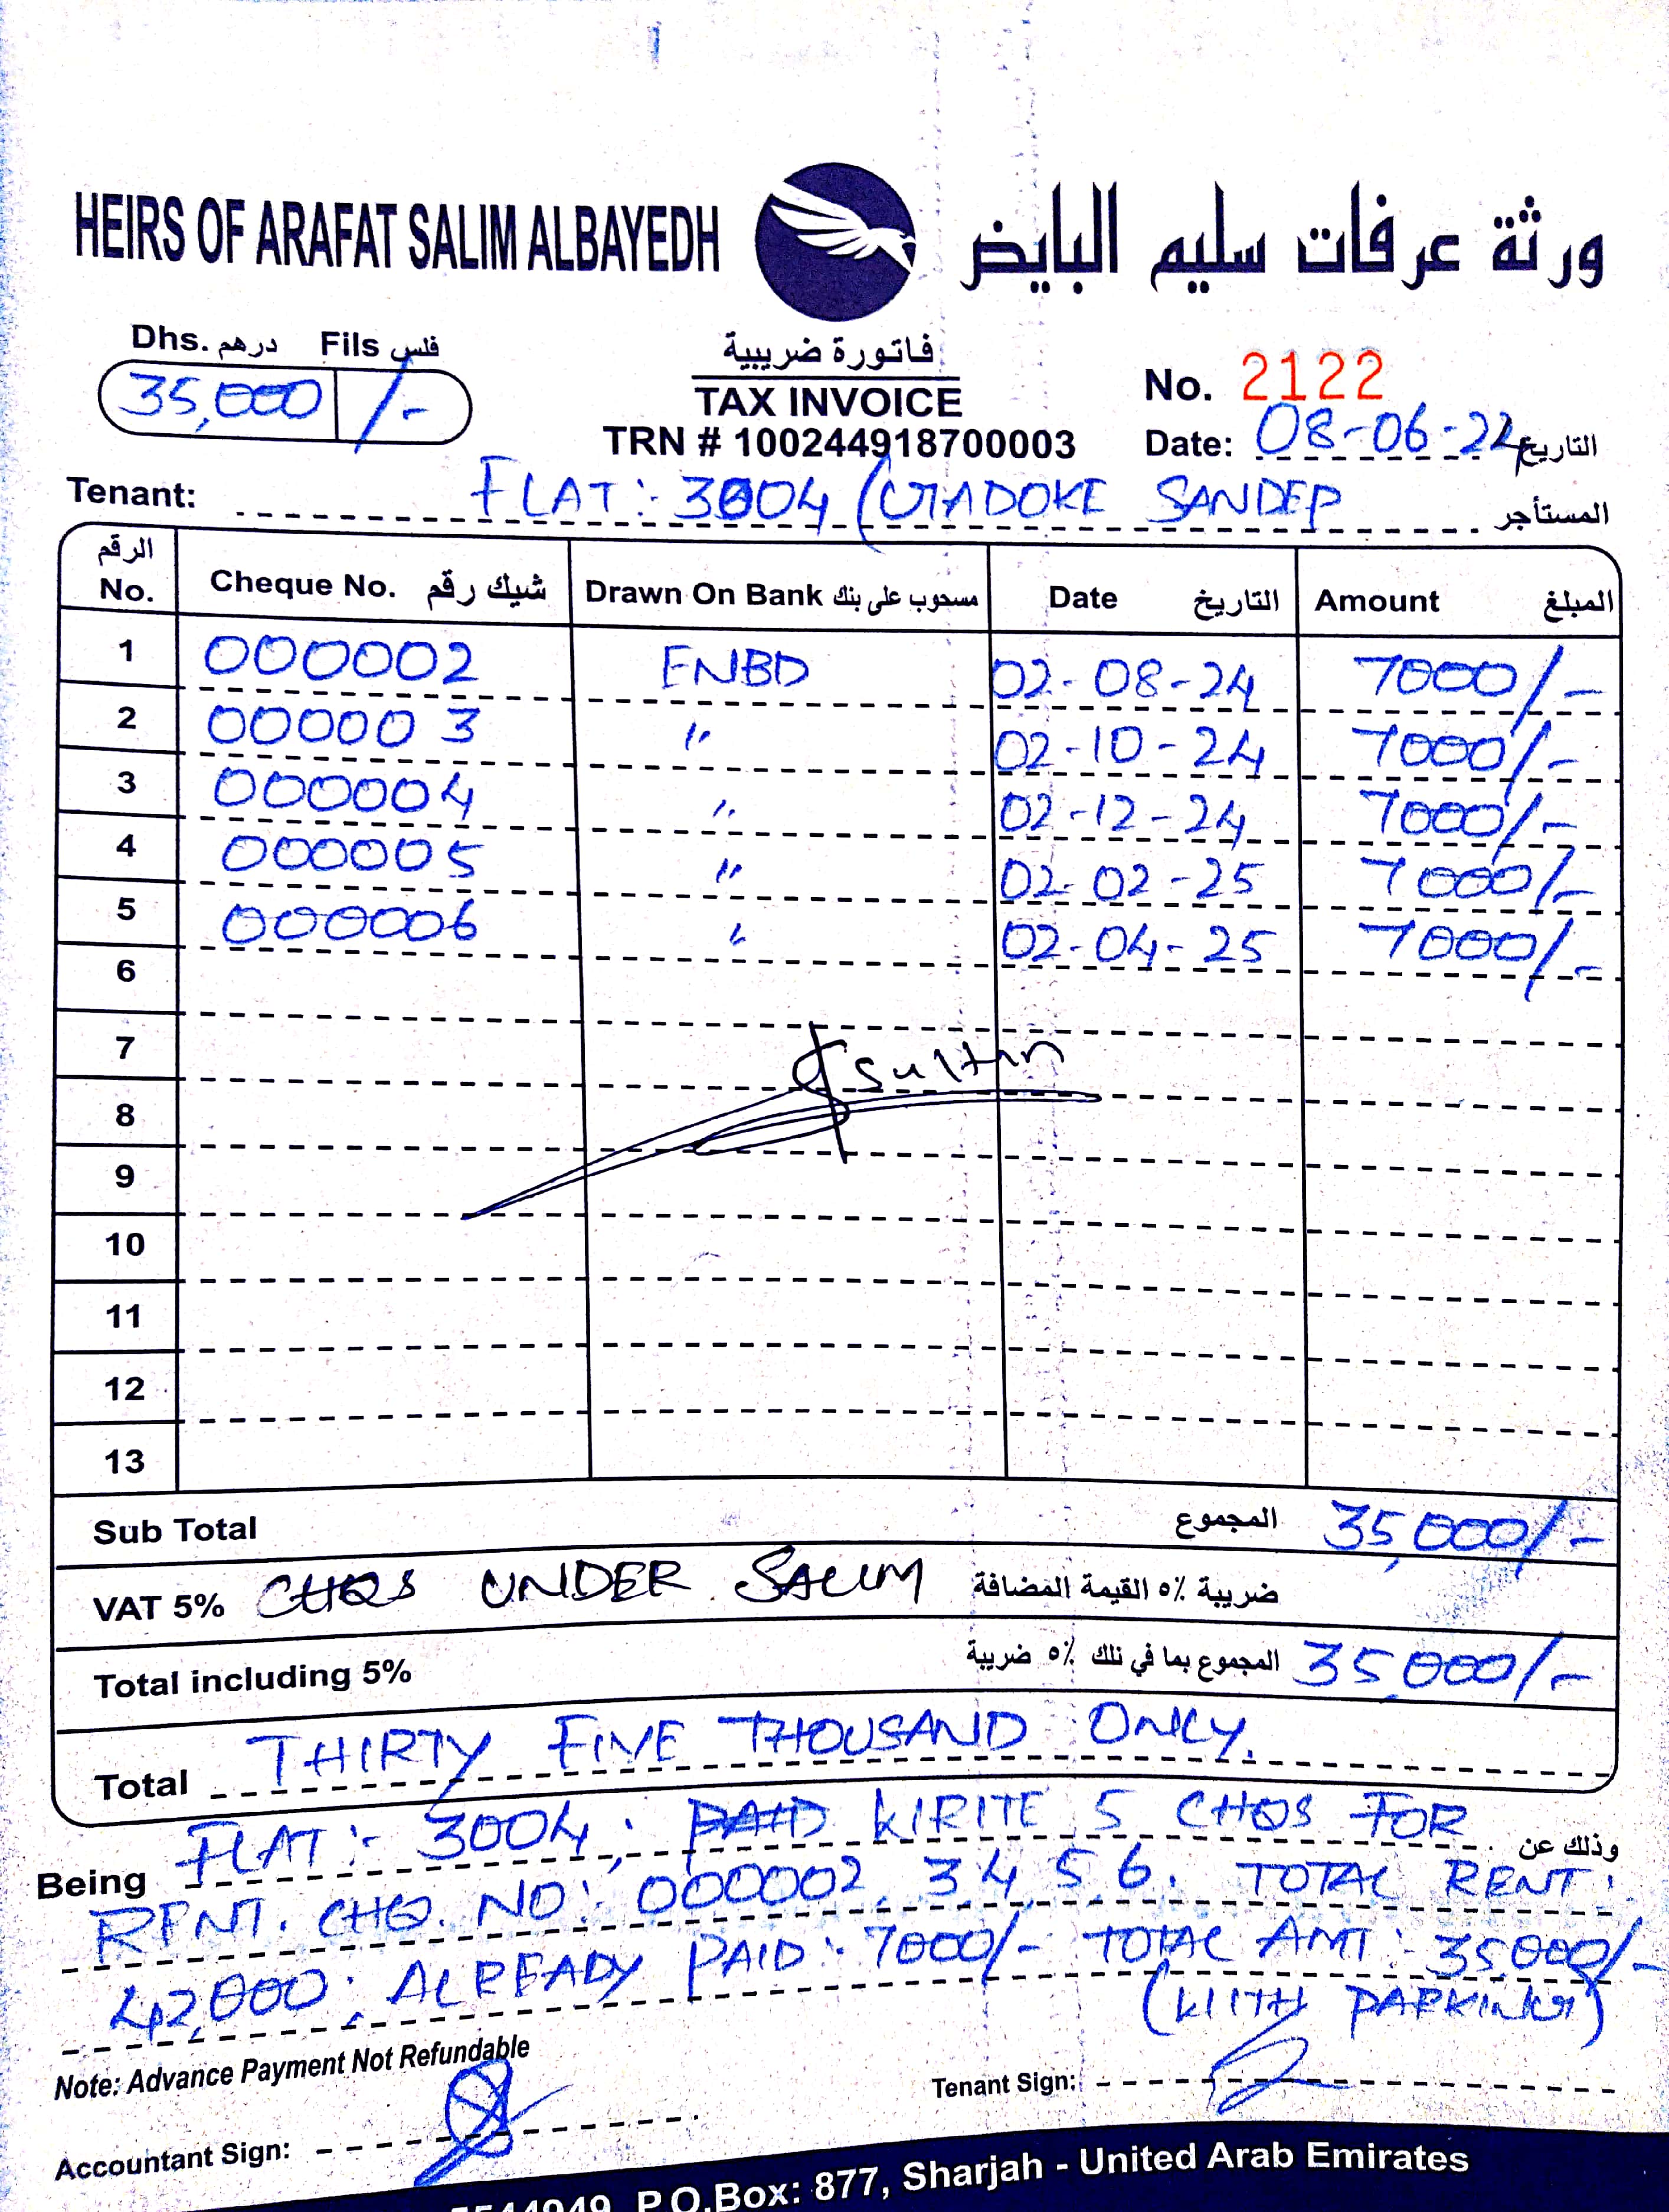 HEIRS OF ARAFAT SALIM ALBAYEDH ورثة عرفات سليم البايض
Dhs. درهم Fils فلس
35,000 /-
فاتورة ضريبية
TAX INVOICE
TRN # 100244918700003
No. 2122
Date: 08-06-24 التاريخ
Tenant: FLAT:- 3004 (GADOKE SANDEP المستأجر
الرقم No. Cheque No. شيك رقم Drawn On Bank مسحوب على بنك Date التاريخ Amount المبلغ
1 000002 ENBD 02-08-24 7000/-
2 000003 " 02-10-24 7000/-
3 000004 " 02-12-24 7000/-
4 000005 " 02-02-25 7000/-
5 000006 " 02-04-25 7000/-
6
7
Sultan
8
9
10
11
12
13
Sub Total المجموع 35,000/-
VAT 5% CHQS UNDER SALIM ضريبة ٥٪ القيمة المضافة
Total including 5% المجموع بما في ذلك ٥٪ ضريبة 35,000/-
Total THIRTY FIVE THOUSAND ONLY.
Being FLAT:- 3004; PAID 5 CHQS FOR وذلك عن
RENT. CHQ. NO:- 000002, 3,4,5,6. TOTAL RENT:
42,000; ALREADY PAID:- 7000/- TOTAL AMT:- 35,000/-
(WITH PARKING)
Note: Advance Payment Not Refundable
Tenant Sign:
Accountant Sign:
P.O.Box: 877, Sharjah - United Arab Emirates